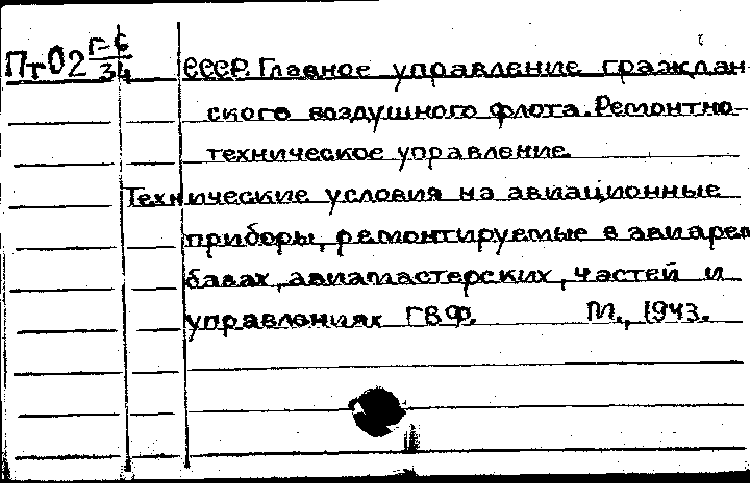 Пт02 Г-6/34
СССР. Главное управление граждан
ского воздушного флота. Ремонтно-
техническое управление.
Технические условия на авиационные
приборы, ремонтируемые в авиарем
базах, авиамастерских, частей и
управлениях ГВФ. М., 1943.